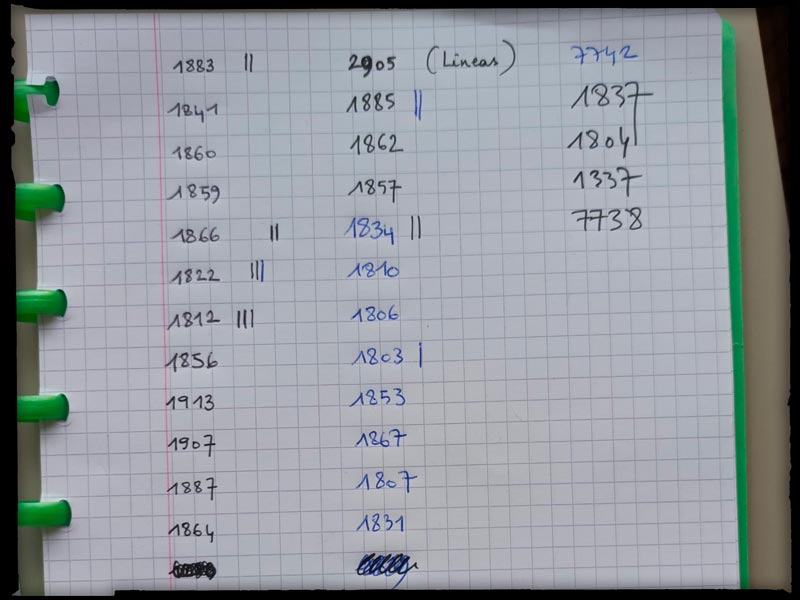 1883 || 2905 (Lineas) 7742
1841 1885 || 1837
1860 1862 1804
1859 1857 1337
1866 || 1834 || 7738
1822 ||| 1810
1812 ||| 1806
1856 1803 |
1913 1853
1907 1867
1887 1807
1864 1831